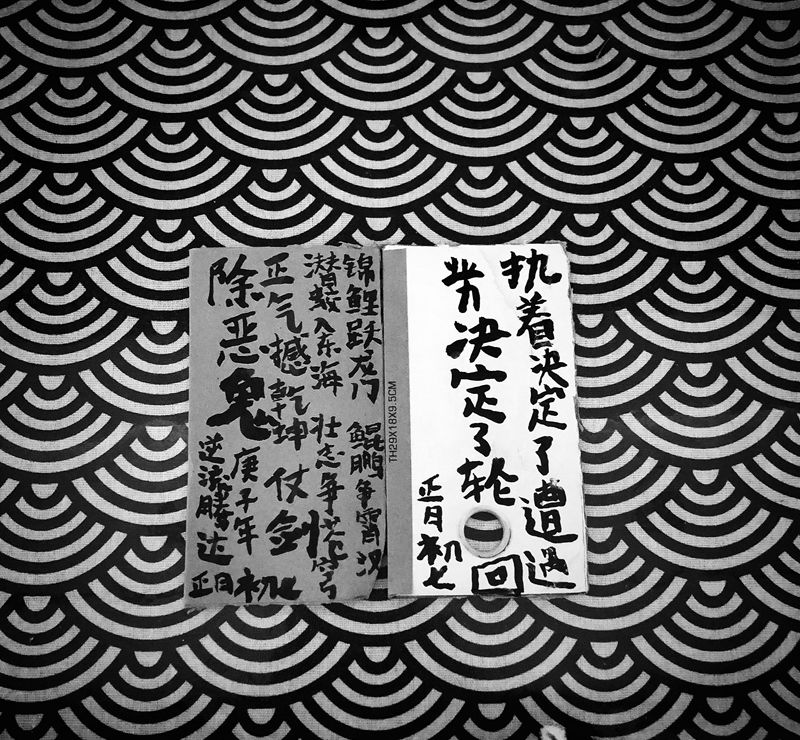 执着决定了遭遇
业力决定了轮回
正月初七
TH29X18X9.5CM
锦鲤跃龙门 鲲鹏争霄汉
潜蛟入东海 壮志争苍穹
正气撼乾坤 仗剑
除恶鬼
庚子年
正月初七
逆流腾达